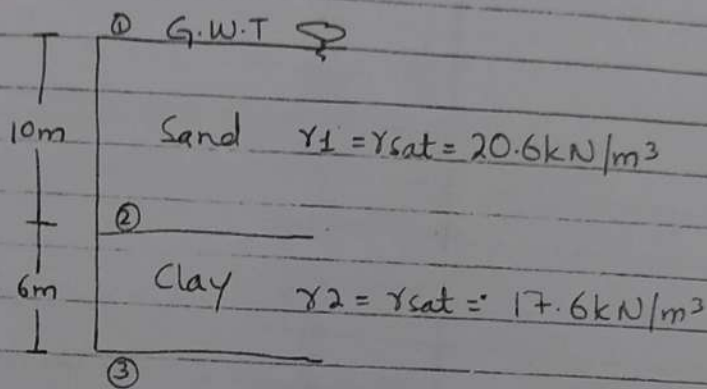 ① G.W.T
10m Sand γ1 = γsat = 20.6kN/m³
②
6m Clay γ2 = γsat = 17.6kN/m³
③